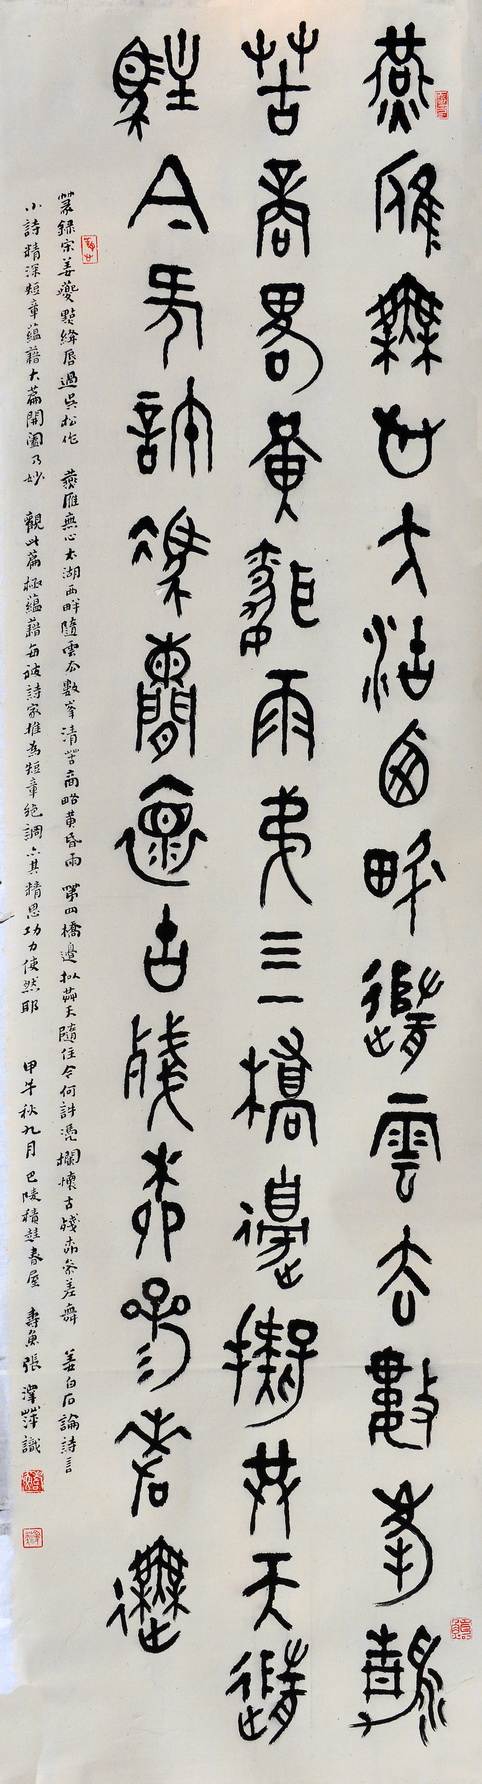 燕雁無心太湖西畔隨雲去數峯清
苦商略黃昏雨弟亖橋邊擬共天隨
住今何許憑闌懷古殘柳參差舞
篆録宋姜夔點絳唇過吳松作 燕雁無心太湖西畔隨雲去數峯清苦商略黃昏雨 第四橋邊擬共天隨住今何許憑欄懷古殘柳參差舞 姜白石論詩言
小詩精深短章蘊藉大篇開闔乃妙 觀此篇極蘊藉每被詩家推為短章絕調亦其精思功力使然耶 甲午秋九月巴陵積春屋 壽魚張萍識